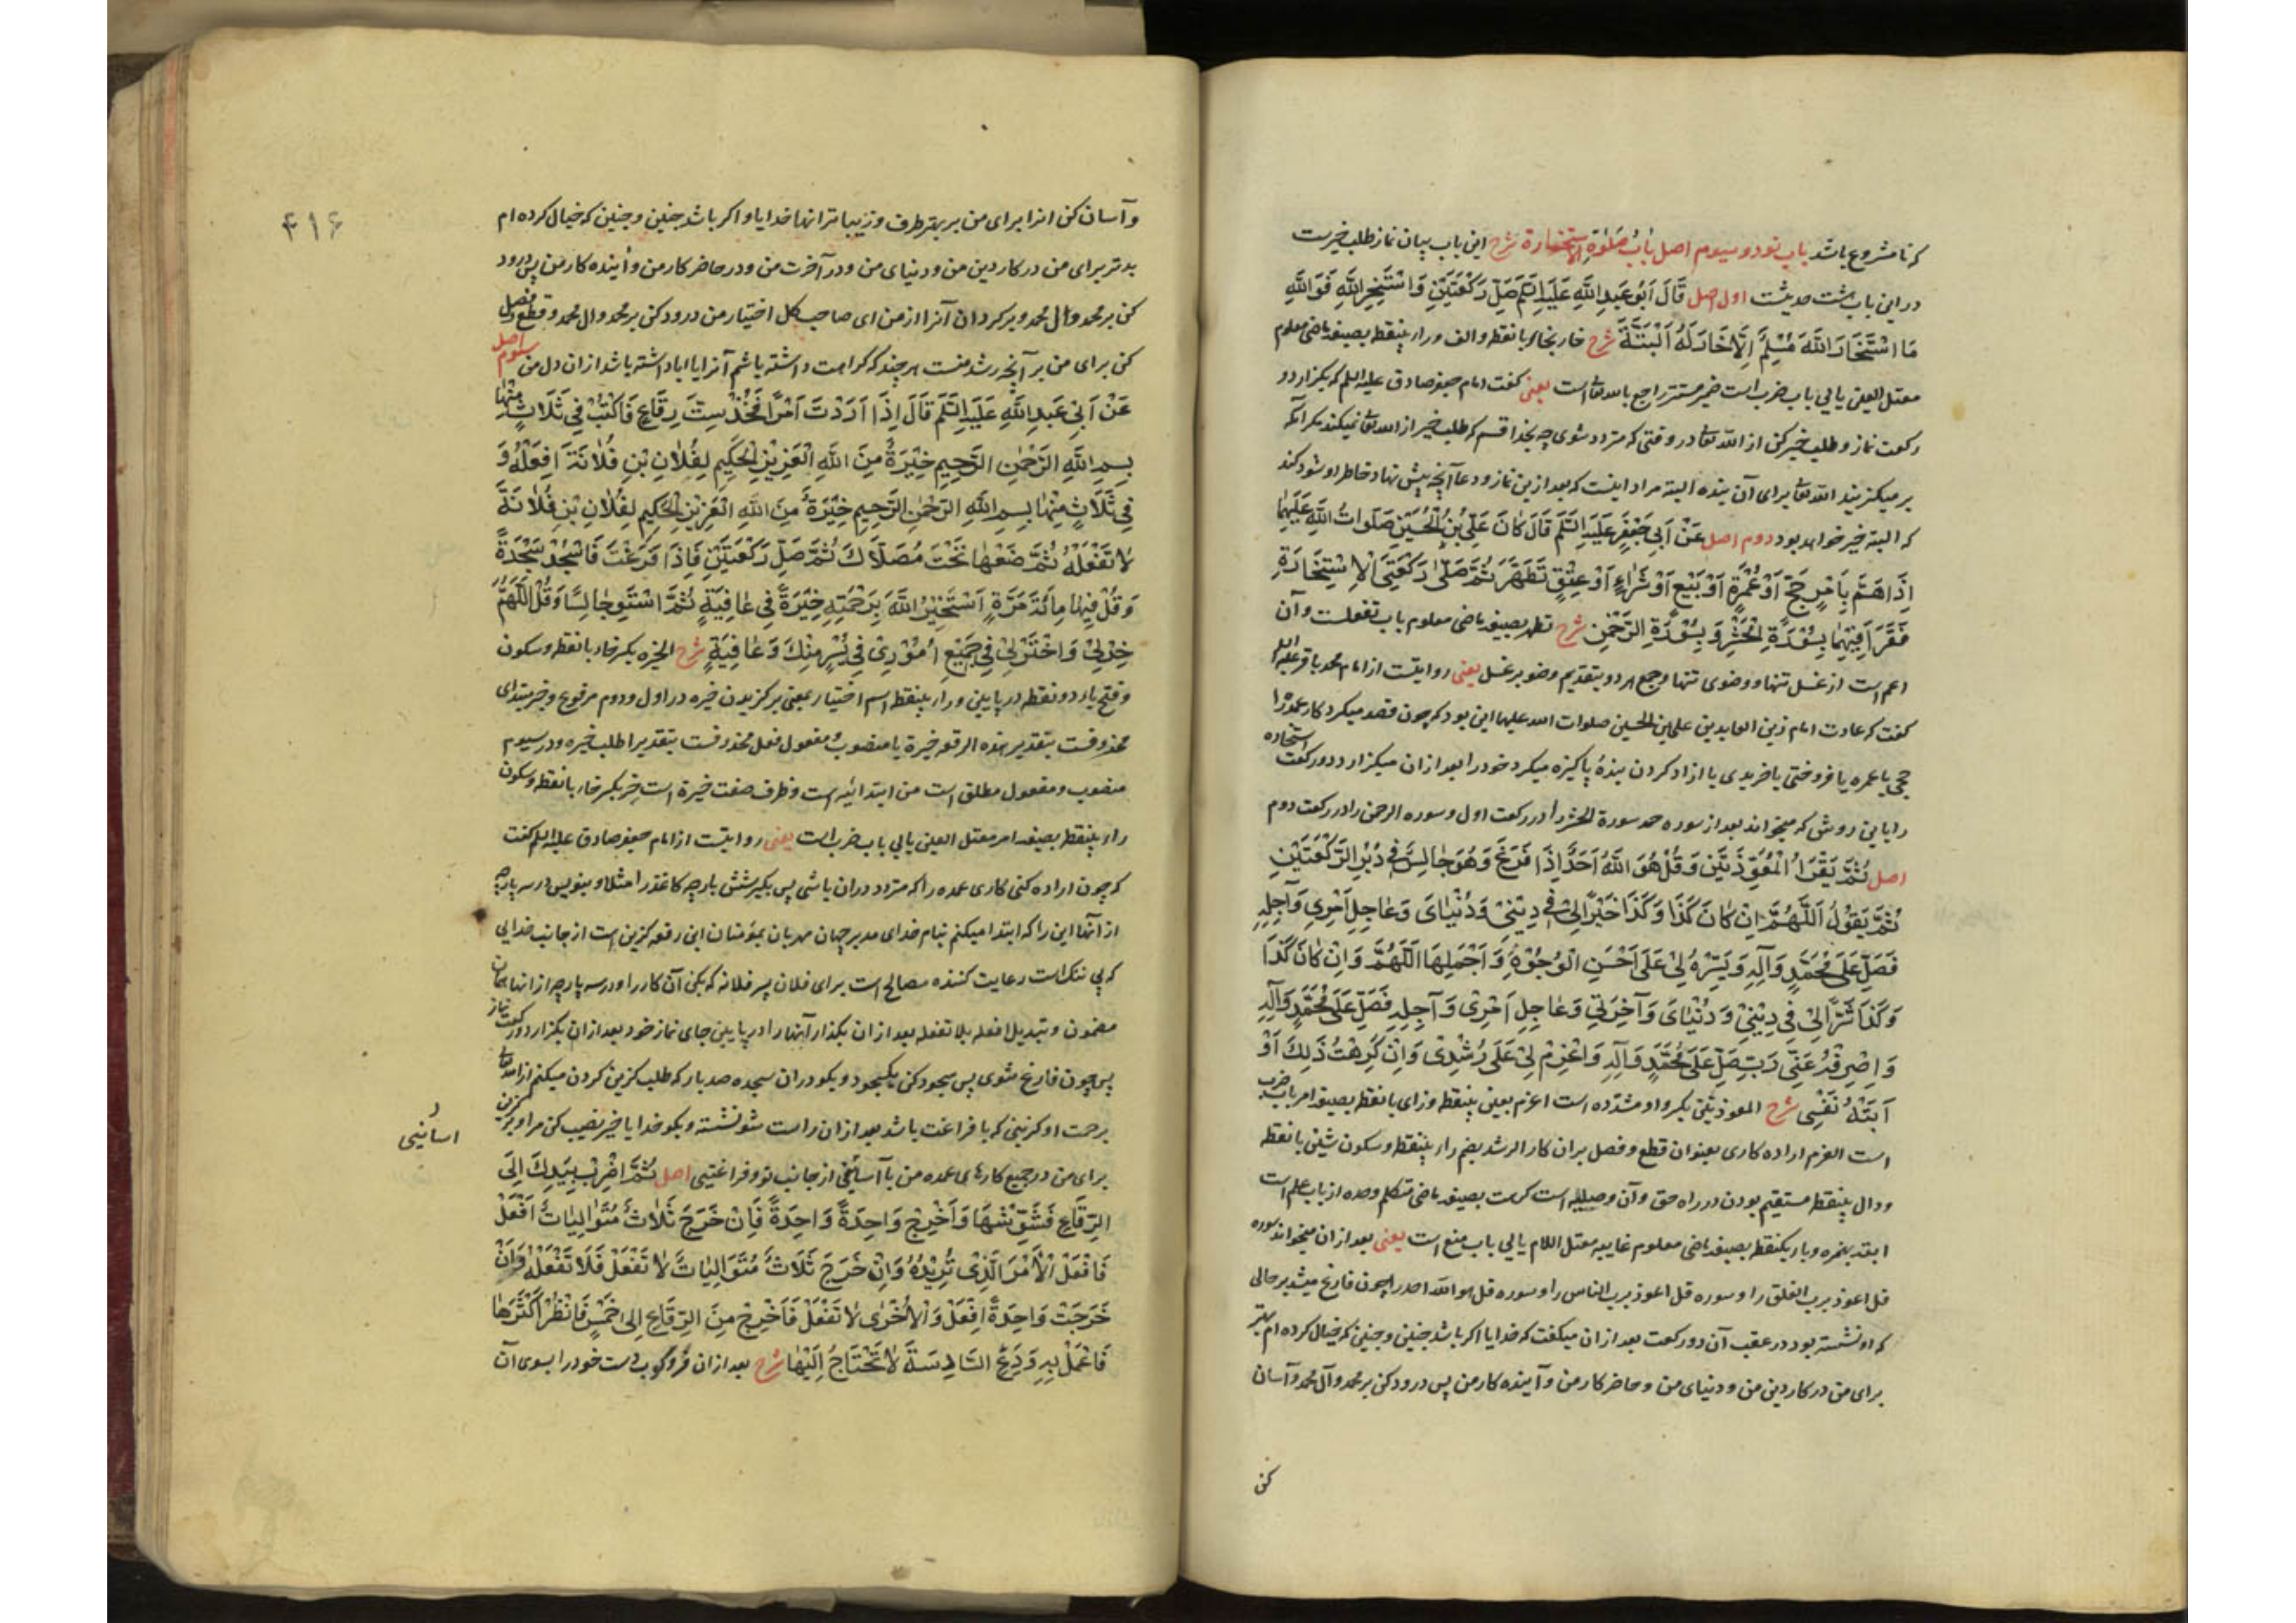 که نا مشروع باشد باب نود و سیوم اصل بَابُ صَلوٰةِ الْاِسْتِخَارَة شرح این باب بیان نماز طلب خیرست
در این باب هشت حدیثست اول اصل قَالَ اَبُو عَبدِ اللَّهِ عَلَيهِ السَّلَم صَلِّ رَكْعَتَيْنِ وَاسْتَخِرِ اللَّهَ فَوَ اللَّهِ
مَا اسْتَخَارَ اللَّهَ مُسْلِمٌ اِلَّا خَارَ لَهُ اَلْبَتَّةَ شرح خار بخای با نقطه و الف و راء بینقطه بصیغه ماضی معلوم
معتل العین یایی باب ضرب است ضمیر مستتر راجع بالله تعالی است یعنی گفت امام جعفر صادق علیه السلم که بگزار دو
رکعت نماز و طلب خیر کن از الله تعالی در وقتی که متردد شوی چه بخدا قسم که طلب خیر از الله تعالی نمیکند مگر آنکه
بر میگزیند الله تعالی برای آن بنده البته مراد اینست که بعد ازین نماز و دعا آنچه پیش نهاد خاطر او شود کند
که البته خیر خواهد بود دوم اصل عَنْ اَبِي جَعْفَرٍ عَلَيهِ السَّلَم قَالَ كَانَ عَلِيُّ بْنُ الْحُسَيْنِ صَلَوَاتُ اللَّهِ عَلَيْهِمَا
اِذَا هَمَّ بِاَمْرِ حَجٍّ اَوْ عُمْرَةٍ اَوْ بَيْعٍ اَوْ شَرَاءٍ اَوْ عِتْقٍ تَطَهَّرَ ثُمَّ صَلّٰى رَكْعَتَيِ الْاِسْتِخَارَةِ
فَقَرَاَ فِيْهِمَا بِسُوْرَةِ الْحَشْرِ وَ بِسُوْرَةِ الرَّحْمٰنِ شرح تطهر بصیغه ماضی معلوم باب تفعلست و آن
اعم است از غسل تنها و وضوی تنها و جمع هر دو بتقدیم وضو بر غسل یعنی روایتست از امام محمد باقر علیه السلم
گفت که عادت امام زین العابدین علی بن الحسین صلوات الله علیهما این بود که چون قصد میکرد کار عمده را
حجی یا عمره یا فروختی یا خریدی یا ازاد کردن بنده پاکیزه میکرد خود را بعد ازان میگزارد دو رکعت استخاره
را باین روش که میخواند بعد از سوره حمد سورة الحشر را در رکعت اول و سوره الرحمن را در رکعت دوم
اصل ثُمَّ يَقْرَاُ الْمُعَوِّذَتَيْنِ وَ قُلْ هُوَ اللَّهُ اَحَدٌ اِذَا فَرَغَ وَ هُوَ جَالِسٌ فِي دُبُرِ الرَّكْعَتَيْنِ
ثُمَّ يَقُوْلُ اَللّٰهُمَّ اِنْ كَانَ كَذَا وَ كَذَا خَيْرًا لِيْ فِي دِيْنِيْ وَ دُنْيَايَ وَ عَاجِلِ اَمْرِي وَ آجِلِهِ
فَصَلِّ عَلَى مُحَمَّدٍ وَ آلِهِ وَ يَسِّرْهُ لِيْ عَلَى اَحْسَنِ الْوُجُوْهِ وَ اَجْمَلِهَا اَللّٰهُمَّ وَ اِنْ كَانَ كَذَا
وَ كَذَا شَرًّا لِيْ فِي دِيْنِيْ وَ دُنْيَايَ وَ آخِرَتِي وَ عَاجِلِ اَمْرِي وَ آجِلِهِ فَصَلِّ عَلَى مُحَمَّدٍ وَ آلِهِ
وَ اصْرِفْهُ عَنِّي رَبِّ صَلِّ عَلَى مُحَمَّدٍ وَ آلِهِ وَ اعْزِمْ لِيْ عَلَى رُشْدِي وَ اِنْ كَرِهْتُ ذَلِكَ اَوْ
اَبَتْهُ نَفْسِي شرح المعوذتین بکسر واو مشدده است اعزم بعین بینقطه و زای با نقطه بصیغه امر باب ضرب
است العزم اراده کاری بعنوان قطع و فصل بران کار الرشد بضم راء بینقطه و سکون شین با نقطه
و دال بینقطه مستقیم بودن در راه حق و آن وصیله است کرهت بصیغه ماضی متکلم وحده از باب علم است
ابته بهمزه و باء یکنقطه بصیغه ماضی معلوم غایبه معتل اللام یایی باب منع است یعنی بعد ازان میخواند سوره
قل اعوذ برب الفلق را و سوره قل اعوذ برب الناس را و سوره قل هو الله احد را چون فارغ میشد بر حالی
که او نشسته بود در عقب آن دو رکعت بعد ازان میگفت که خدایا اگر باشد چنین و چنین که خیال کرده ام بهتر
برای من در کار دین من و دنیای من و حاضر کار من و آینده کار من پس درود کن بر محمد و آل محمد و آسان
کن
۴۱۶
و آسان کن انرا برای من بر بهتر طرف و زیباتر انها خدایا و اگر باشد چنین و چنین که خیال کرده ام
بدتر برای من در کار دین من و دنیای من و در آخرت من و در حاضر کار من و آینده کار من پس درود
کن بر محمد و ال محمد و برگردان آنرا از من ای صاحب کل اختیار من درود کن بر محمد و ال محمد و قطع و فصل
کن برای من بر آنچه رشد منست هر چند که کراهت داشته باشم آنرا یا ابا داشته باشد ازان دل من سیوم اصل
عَنْ اَبِي عَبدِ اللَّهِ عَلَيهِ السَّلَم قَالَ اِذَا اَرَدْتَ اَمْرًا فَخُذْ سِتَّ رِقَاعٍ فَاكْتُبْ فِي ثَلَاثٍ مِنْهَا
بِسمِ اللَّهِ الرَّحْمٰنِ الرَّحِيمِ خِيَرَةٌ مِنَ اللَّهِ الْعَزِيزِ الْحَكِيمِ لِفُلَانِ بْنِ فُلَانَةَ اِفْعَلْهُ وَ
فِي ثَلَاثٍ مِنْهَا بِسمِ اللَّهِ الرَّحْمٰنِ الرَّحِيمِ خِيَرَةٌ مِنَ اللَّهِ الْعَزِيزِ الْحَكِيمِ لِفُلَانِ بْنِ فُلَانَةَ
لَا تَفْعَلْهُ ثُمَّ ضَعْهَا تَحْتَ مُصَلَّاكَ ثُمَّ صَلِّ رَكْعَتَيْنِ فَاِذَا فَرَغْتَ فَاسْجُدْ سَجْدَةً
وَ قُلْ فِيْهَا مِائَةَ مَرَّةٍ اَسْتَخِيْرُ اللَّهَ بِرَحْمَتِهِ خِيَرَةً فِي عَافِيَةٍ ثُمَّ اسْتَوِ جَالِسًا وَ قُلْ اَللّٰهُمَّ
خِرْ لِيْ وَ اخْتَرْ لِيْ فِي جَمِيْعِ اُمُوْرِيْ فِي يُسْرٍ مِنْكَ وَ عَافِيَةٍ شرح الخیره بکسر خاء با نقطه و سکون
و فتح یاء دو نقطه در پایین و راء بینقطه اسم اختیار بمعنی برگزیدن خیره در اول و دوم مرفوع و خبر مبتدای
محذوفست بتقدیر هذه الرقعه خیرة یا منصوب و مفعول فعل محذوفست بتقدیر اطلب خیره و در سیوم
منصوب و مفعول مطلق است من ابتدائیه است و ظرف صفت خیرة است خر بکسر خاء با نقطه و سکون
راء بینقطه بصیغه امر معتل العین یایی باب ضرب است یعنی روایتست از امام جعفر صادق علیه السلم گفت
که چون اراده کنی کاری عمده را که متردد دران باشی پس بگیر شش پارچه کاغذ را مثلا و بنویس در سه پارچه
از آنها این را که ابتدا میکنم بنام خدای مدبر جهان مهربان بمؤمنان این رقعه گزین است از جانب خدایی
که بی ننگ است رعایت کننده مصالح است برای فلان پسر فلانه که بکن آن کار را و در سه پارچه از انها همان
مضمون و تبدیل افعله بلا تفعله بعد ازان بگذار آنها را در پایین جای نماز خود بعد ازان بگزار دو رکعت نماز
پس چون فارغ شوی پس سجود کن یکسجود و بگو دران سجده صد بار که طلب گزین کردن میکنم از الله تعالی
برحمت او گزینی که با فراغت باشد بعد ازان راست شو نشسته و بگو خدایا خیر نصیب کن مرا و برگزین
برای من در جمیع کارهای عمده من با آسانیی از جانب تو و فراغتیی اصل ثُمَّ اضْرِبْ بِيَدِكَ اِلَى
اسانیی
الرِّقَاعِ فَشَوِّشْهَا وَ اَخْرِجْ وَاحِدَةً وَاحِدَةً فَاِنْ خَرَجَ ثَلَاثٌ مُتَوَالِيَاتٌ اِفْعَلْ
فَافْعَلْ الْاَمْرَ الَّذِي تُرِيْدُهُ وَ اِنْ خَرَجَ ثَلَاثٌ مُتَوَالِيَاتٌ لَا تَفْعَلْ فَلَا تَفْعَلْهُ وَ اِنْ
خَرَجَتْ وَاحِدَةٌ اِفْعَلْ وَ الْاُخْرٰى لَا تَفْعَلْ فَاَخْرِجْ مِنَ الرِّقَاعِ اِلَى خَمْسٍ فَانْظُرْ اَكْثَرَهَا
فَاعْمَلْ بِهِ وَ دَعِ السَّادِسَةَ لَا تَحْتَاجُ اِلَيْهَا شرح بعد ازان فرو کوب دست خود را بسوی آن